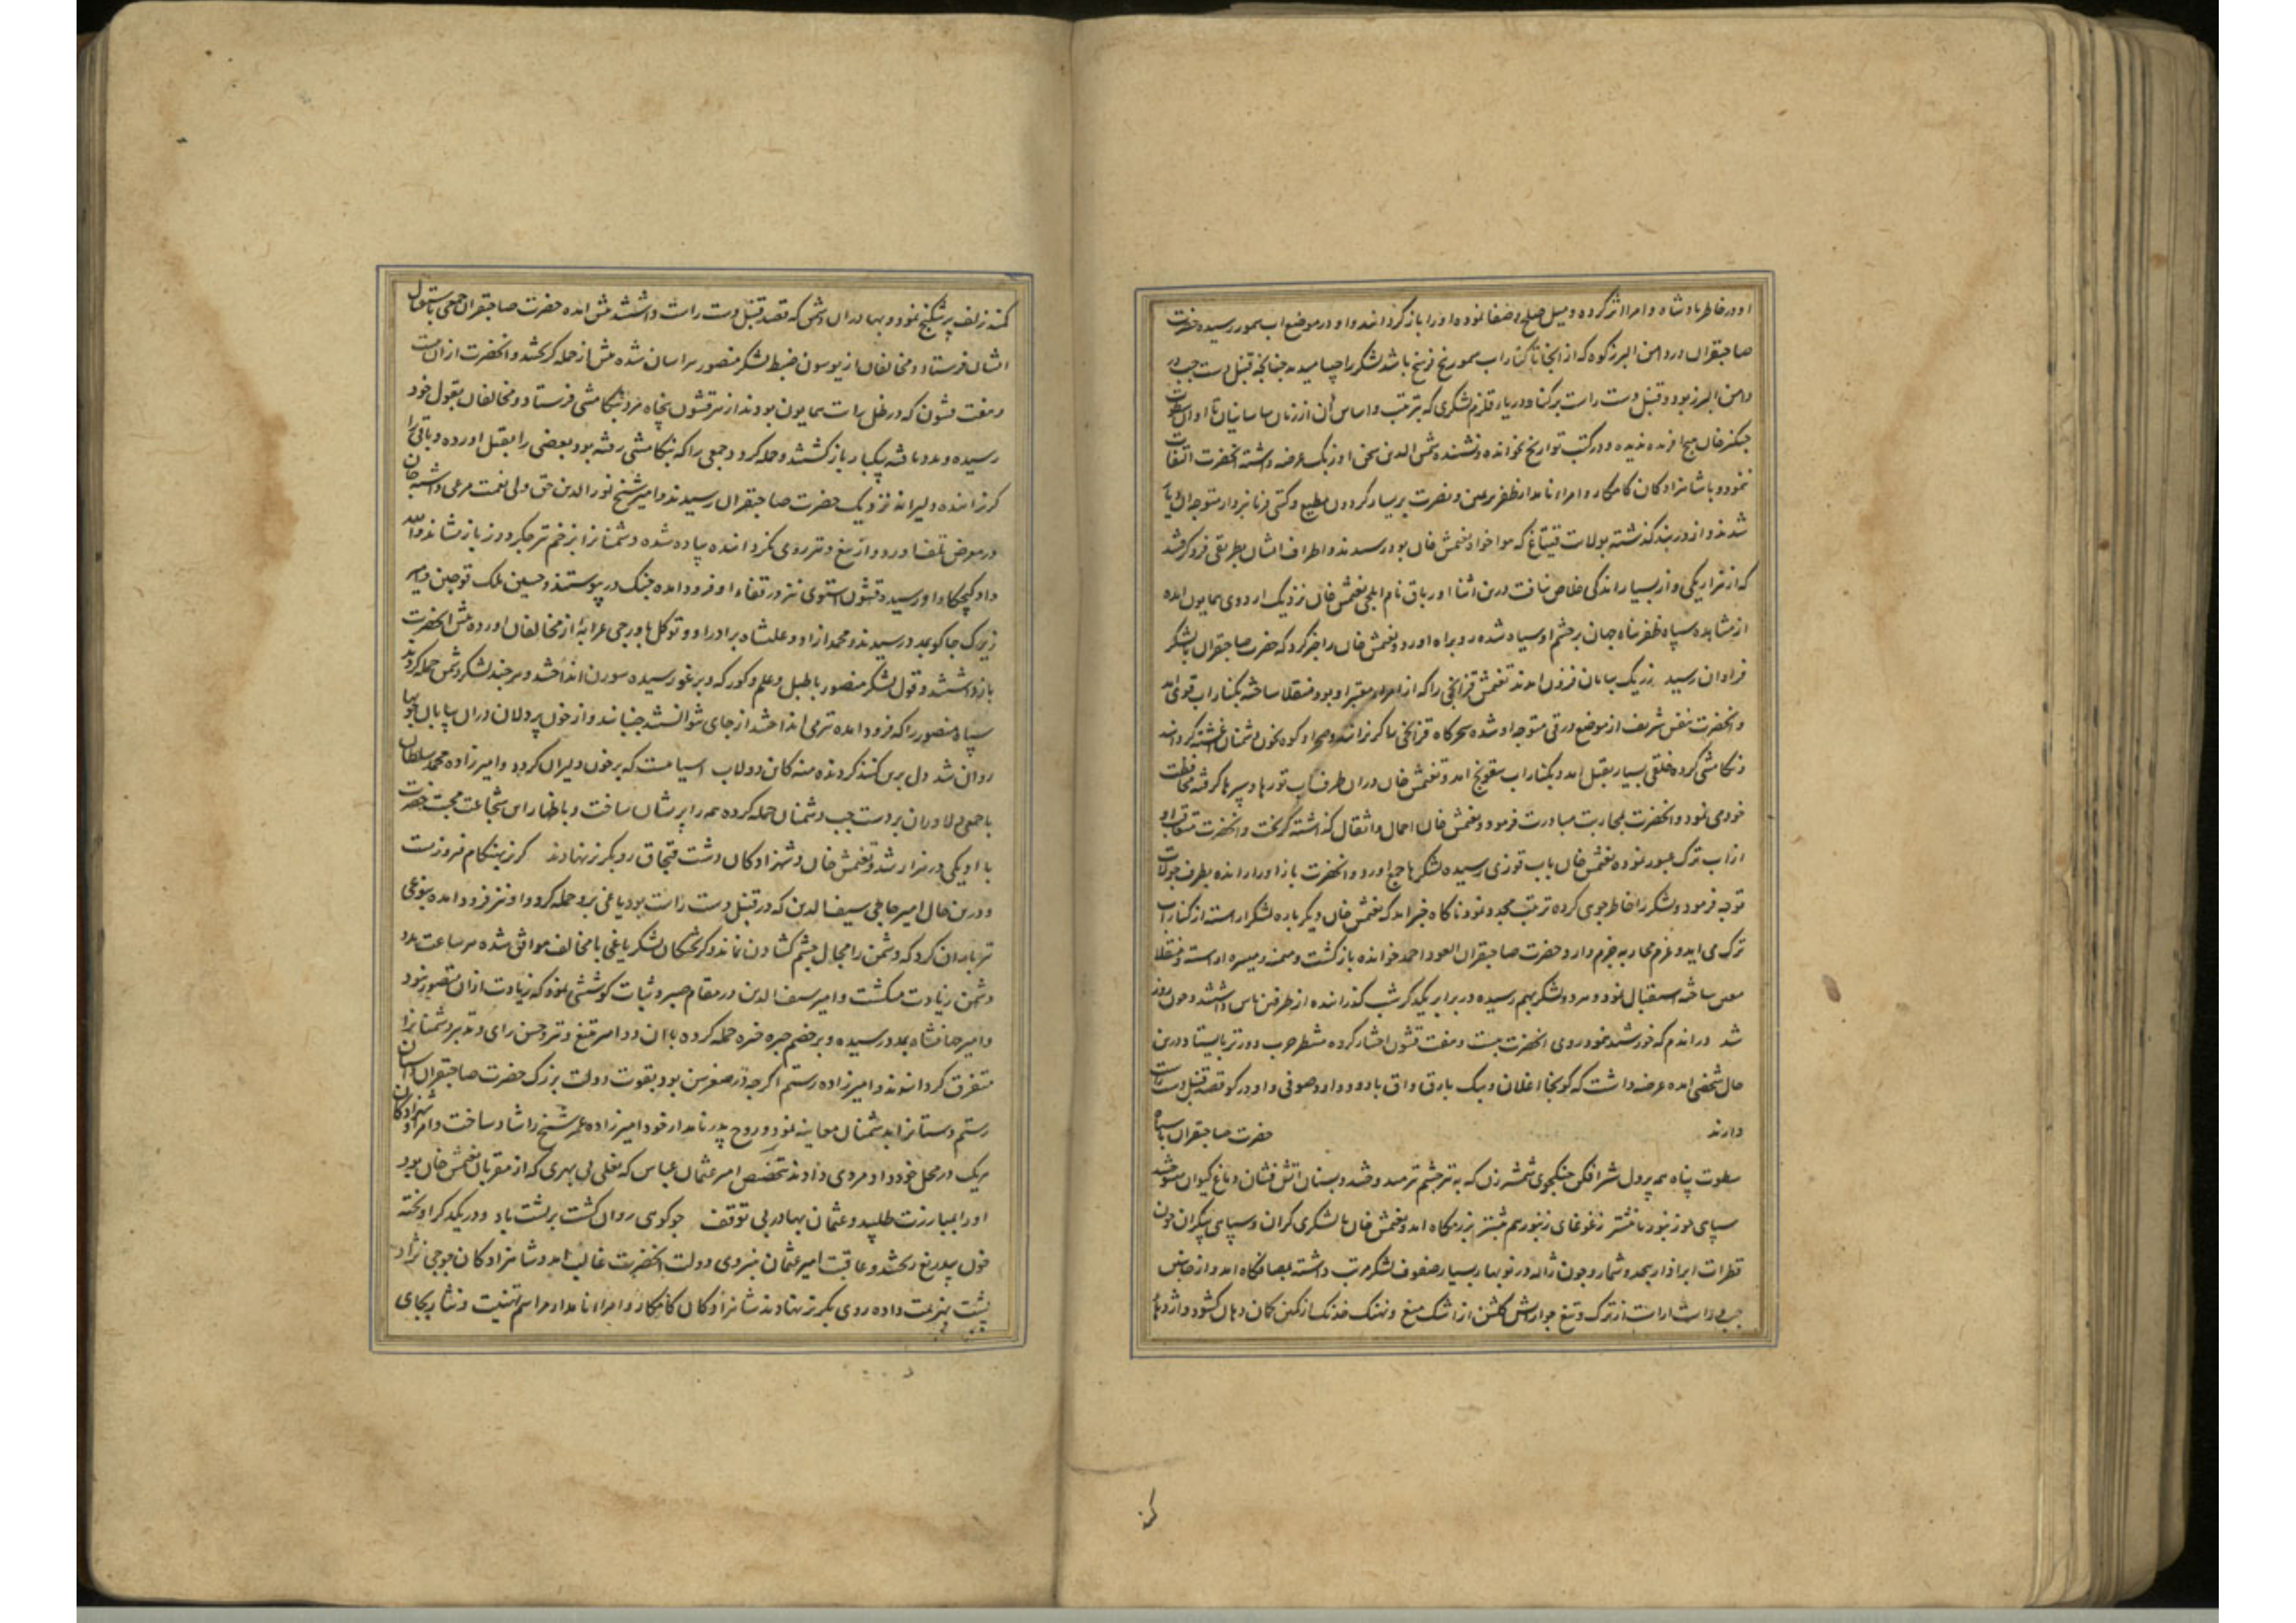 او در خاطر پادشاه و امرا اثر کرده و میل صلح و صفا نموده او را باز گردانند و او در موضع اب سمور رسیده حضرت
صاحبقران در دامن البرز کوه که از انجا تا کنار اب سمور پنج فرسخ باشد لشکر را جیبا میدید چنانچه قنبل دست چپ در
دامن البرز بود و قنبل دست راست بر کناره دریاء قلزم لشکری که بترتیب و اساس آن از زمان ساسانیان تا اوان سطوت
جنکزخان هیچ افریده ندیده و در کتب تواریخ نخوانده و نشنیده شمس الدین سخن اوزبک عرضه داشته انحضرت التفات
ننمود و با شاهزادکان کامکار و امراء نامدار ظفر بر یمین و نصرت بر یسار گردون مطیع و کتی فرمانبردار متوجه ان دیار
شدند و از دربند کذشته بولایت قیتاغ که هواخواه تغتمش خان بود رسیدند و اطراف ایشان بطریقی فرو کرفتند
که از هزار یکی و از بسیار اندکی خلاص نیافت درین اثنا اورتاق نام ایلچی تغتمش خان نزدیک اردوی همایون امده
از مشاهده سپاه ظفر پناه جهان بر چشم او سیاه شده رو براه اورد و تغتمش خان را خبر کرد که حضرت صاحبقران با لشکر
فراوان رسید ز ریک بیابان فزون امدند تغتمش قزانچی را که از امراء معتبر او بود منقلا ساخته بکنار اب قوی امد
و انحضرت بنفس شریف از موضع ترقی متوجه او شده سحرکاه قزانچی را کریزانیده و صحرا و کوه بخون دشمنان اغشته کردانید
و تکامشی کرده خلقی بسیار بقتل امد و بکنار اب سونج امد و تغتمش خان دران طرف اب تورها و سپرها کرفته محافظت
خود می نمود و انحضرت بمحاربت مبادرت فرمود و تغتمش خان احمال و اثقال کذاشته کریخت و انحضرت متعاقب او
از اب ترک عبور نموده تغتمش خان باب قوری رسیده لشکرها جمع اورد و انحضرت باز او را رانده بطرف جولات
توجه فرمود و لشکر را خاطر جوی کرده ترتیب مجدد نمود ناکاه خبر امد که تغتمش خان دیکر باره لشکر اراسته از کنار اب
ترک می اید و عزم محاربه جزم دارد حضرت صاحبقران العود احمد خوانده بازکشت و میمنه و میسره اراسته و منقلا
معین ساخته استقبال نمود و هر دو لشکر بهم رسیده در برابر یکدیکر شب کذرانده از طرفین پاس داشتند و چون روز
شد دراندم که خورشید نمود روی انحضرت بیست و هفت قشون اختیار کرده منتظر حرب دورتر بایستاد و درین
حال شخصی امده عرضه داشت که کونجا اغلان و بیک یارق و اق یارو و داود صوفی و اودرکو قصد قنبل دست راست
دارند حضرت صاحبقران با سپاه
سطوت پناه همه پر دل شیر افکن جنکجوی شمشیر زن که به تیر چشم تیر میدوختند و بسنان اتش فشان دماغ کیوان میسوختند
سپاهی چو زنبور با نیشتر ز غوغای زنبور هم بیشتر بزرمکاه امد و تغتمش خان با لشکری کران و سپاهی بیکران چون
قطرات ابر اذار بیحد و شمار و چون ژاله در نوبهار بسیار صفوف لشکر مرتب داشته بمصافکاه امد و از جانبین
چپ و راست اراست از ترک و تیغ چو ارایش کلشن از اشک میغ و نهنک خدنک از کمین کمان دهان کشود و اژدهاء
کمند
کمند زلف پر شکنج نمود و بهادران دشمن که قصد قنبل دست راست داشتند پیش امده حضرت صاحبقران جمعی باستقبال
ایشان فرستاد و مخالفان از یوسون ضبط لشکر منصور هراسان شده پیش از حمله کریختند و انحضرت از ان بیست
و هفت قشون که در ظل رایت همایون بودند از هر قشون پنجاه مرد بتکامشی فرستاد و مخالفان بقول خود
رسیده و مدد یافته بیکبار بازکشتند و حمله کرد و جمعی را که بتکامشی رفته بود بعضی را بقتل اورده و باقی را
کریزانده دلیرانه نزدیک حضرت صاحبقران رسیدند و امیر شیخ نورالدین حق ولی نعمت مرعی داشته جان
در معرض تلف اورد و از تیغ و تیر روی نکردانده پیاده شده دشمنانرا بزخم تیر جکر دوز باز نشاند و الله
داد کپچکا و او رسید و قشون استوی نیز در قفاء او فرود امده جنک در پیوستند و حسین ملک قوجین و امیر
زیرک جاکو بمدد رسیدند و محمد ازاد و علیشاه برادر او و توکل باورچی عرابه از مخالفان اورده پیش انحضرت
بازداشتند و قول لشکر منصور با طبل و علم و کورکه و برغو رسیده سورن انداختند و هرچند لشکر دشمن حمله کردند
سپاه منصور را که فرود امده تیر می انداختند از جای نتوانستند جنبانید و از خون پردلان دران بیابان جویها
روان شد دل برین کنبد کردنده منه کاین دولاب اسیاییست که بر خون دلیران کردد و امیرزاده محمد سلطان
با جمعی دلاوران بر دست چپ دشمنان حمله کرده همه را پریشان ساخت و باظهار این شجاعت محبت حضرت
با او یکی در هزار شد و تغتمش خان و شهزادکان دشت قبچاق رو بکریز نهادند کریز بهنکام فیروزیست
و درین حال امیر حاجی سیف الدین که در قنبل دست راست بود یاغی برو حمله کرد و او نیز فرود امده بنوعی
تیر باران کرد که دشمن را مجال چشم کشادن نماند و کریختکان لشکر یاغی با مخالف موافق شده هر ساعت مدد
دشمن زیادت میکشت و امیر سیف الدین در مقام صبر و ثبات کوششی نمود که زیادت از ان متصور نبود
و امیر جهانشاه بمدد رسیده و بر خصم چیره خیره حمله کرده با ان دو امیر تیغ و تیر و حسن رای و تدبیر دشمنانرا
متفرق کردانیدند و امیرزاده رستم اکرچه در صغر سن بود بقوت دولت بزرک حضرت صاحبقران داستان
رستم دستانرا بدشمنان معاینه نمود و روح پدر نامدار خود امیرزاده عمر شیخ را شاد ساخت و امرا و شهزادکان
هریک در محل خود داد مردی دادند بتخصیص امیر عثمان عباس که یغلی بی بهری که از مقربان تغتمش خان بود
او را بمبارزت طلبید و عثمان بهادر بی توقف چو کوهی روان کشت بر پشت باد و در یکدیکر اویخته
خون بیدریغ ریختند و عاقبت امیر عثمان بنیروی دولت انحضرت غالب امد و شاهزادکان جوجی نژاد
پشت بهزیمت داده روی بکریز نهادند شاهزادکان کامکار و امراء نامدار مراسم تهنیت و نثار بجای